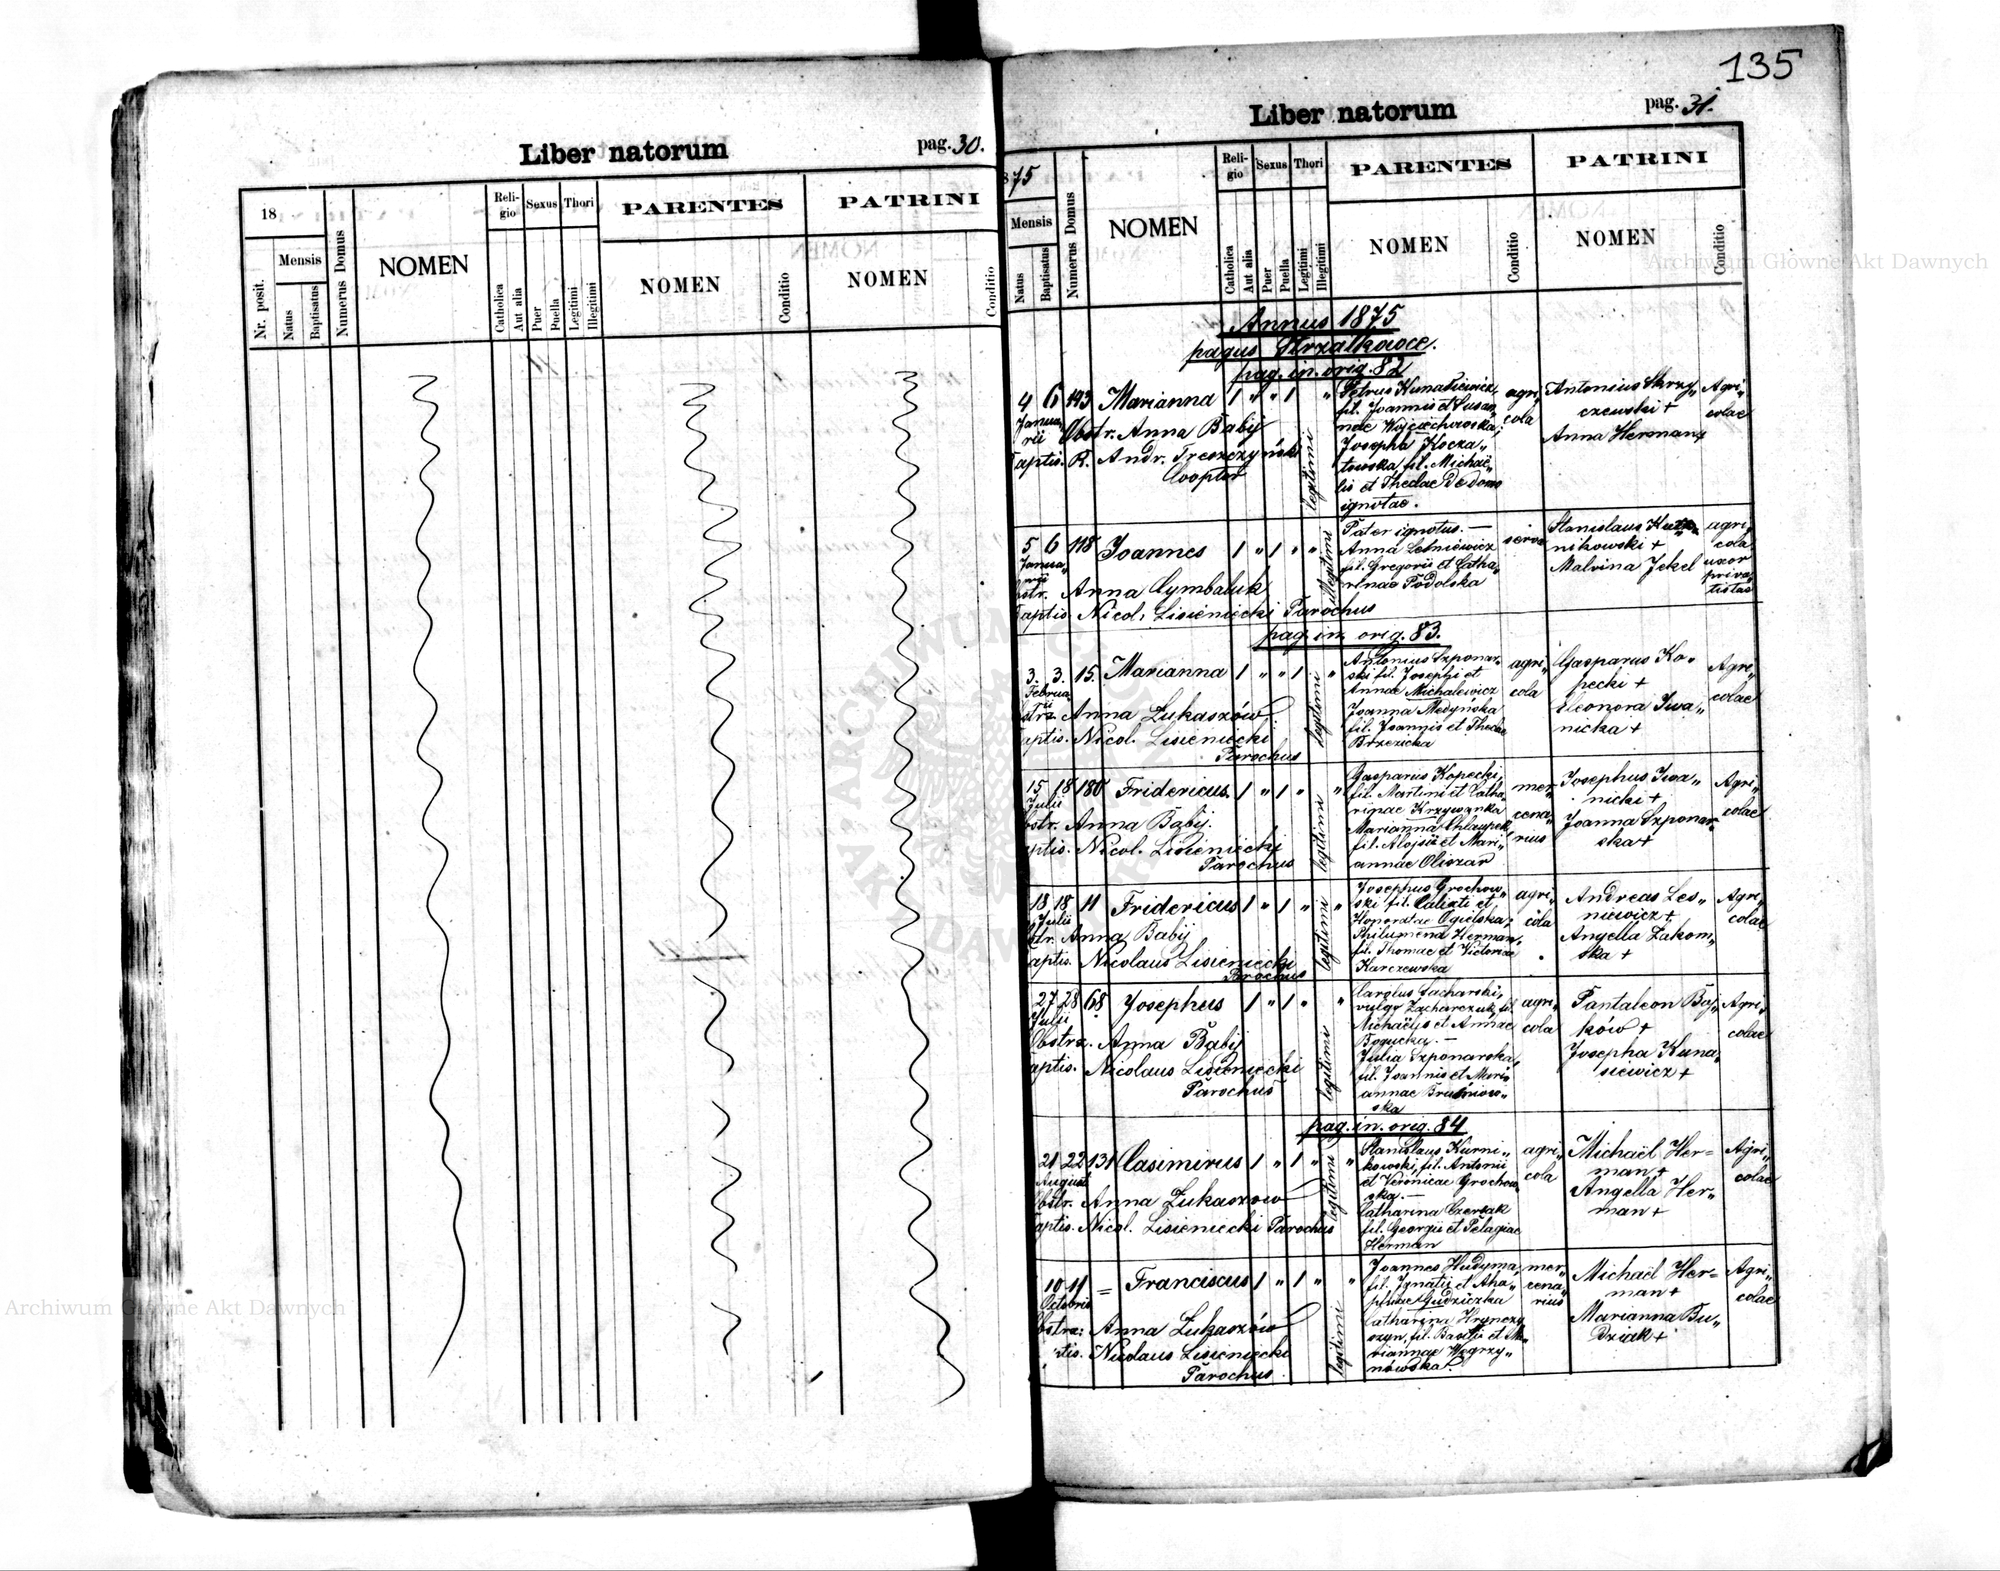 135
Liber natorum pag. 30.
18
Nr. posit.
Mensis
Natus
Baptisatus
Numerus Domus
NOMEN
Reli-
gio
Catholica
Aut alia
Sexus
Puer
Puella
Thori
Legitimi
Illegitimi
PARENTES
NOMEN
Conditio
PATRINI
NOMEN
Conditio
Liber natorum pag. 31.
75
Mensis
Natus
Baptisatus
Numerus Domus
NOMEN
Reli-
gio
Catholica
Aut alia
Sexus
Puer
Puella
Thori
Legitimi
Illegitimi
PARENTES
NOMEN
Conditio
PATRINI
NOMEN
Conditio
Annus 1875
pagus Strzałkowce.
pag. in. orig. 82
4 6 193 Marianna 1 " " 1 "
Janua-
rii Obstr. Anna Babij
aptis. R. Andr. Treszczyński
Cooptor
legitimi
Petrus Kunasiewicz,
fil. Joannis et Susan-
nae Wojciechowska,
Josepha Kocza-
towska, fil. Michaë-
lis et Theclae De domo
ignotae.
agri-
cola
Antonius Skrzy-
czewski +
Anna Herman +
Agri-
colae
5 6 118 Joannes 1 " 1 " "
Janua-
rii
bstr. Anna Cymbaluk
aptis. Nicol. Lisieniecki Parochus
illegitimi
Pater ignotus. —
Anna Letniewicz
fil. Gregorii et Catha-
rinae Podolska
serva
Stanislaus
nikowski +
Malvina Jekel
agri-
cola
uxor
priva-
tistae
pag. in. orig. 83.
3. 3. 15. Marianna 1 " " 1 "
Februa-
rii
bstrz. Anna Łukaszów
aptis. Nicol. Lisieniecki
Parochus
legitimi
Antonius Szponar-
ski fil. Josephi et
Annae Michalewicz
Joanna Medyńska
fil. Joannis et Theclae
Brzezicka
agri-
cola
Gasparus Ko-
pecki +
Eleonora Iwa-
nicka +
Agri-
colae
15 18 180 Fridericus. 1 " 1 " "
Julii
bstr. Anna Babij.
ptis. Nicol. Lisieniecki
Parochus
legitimi
Gasparus Kopecki,
fil. Martini et Catha-
rinae Krzywanka
Marianna Chlaupek,
fil. Alojsii et Mari-
annae Oliszar
mer-
cena-
rius
Josephus Iwa-
nicki +
Joanna Szponar-
ska +
Agri-
colae
18 18 11 Fridericus 1 " 1 " "
Julii
bstr. Anna Babij
aptis. Nicolaus Lisieniecki
Parochus
legitimi
Josephus Grochow-
ski fil. Calixti et
Honoratae Ogielska,
Philumena Herman,
fil. Thomae et Victoriae
Karczewska
agri-
cola
Andreas Les-
niewicz +
Angella Zakom-
ska +
Agri-
colae
27 28 68 Josephus 1 " 1 " "
Julii
Obstrz. Anna Babij
aptis. Nicolaus Lisieniecki
Parochus
legitimi
Carolus Sacharski,
vulgo Zacharczuk, fil.
Michaëlis et Annae
Bogucka. —
Julia Szponarska,
fil. Joannis et Mari-
annae
ska
agri-
cola
Pantaleon Baj-
ków +
Josepha Kuna-
siewicz +
Agri-
colae
pag. in. orig. 84
21 22 131 Casimirus 1 " 1 " "
Augusti
Obstr. Anna Łukaszow
aptis. Nicol. Lisieniecki Parochus
legitimi
Stanislaus Kurni-
kowski, fil. Antonii
et Veronicae Grochow-
ska. —
Catharina Czerlak
fil. Georgii et Pelagiae
Herman
agri-
cola
Michaël Her-
man +
Angella Her-
man +
Agri-
colae
10 11 = Franciscus 1 " 1 " "
Octobris
bstrz: Anna Łukaszów
tis. Nicolaus Lisieniecki
Parochus
legitimi
Joannes Hudyma,
fil. Ignatii et Aha-
phiae Gudziczka
Catharina Hrynczy-
szyn, fil. Basilii et Ma-
riannae Węgrzy-
nówska.
mer-
cena-
rius
Michaël Her-
man +
Marianna Bu-
dziak +
Agri-
colae
Archiwum Główne Akt Dawnych
Archiwum Główne Akt Dawnych